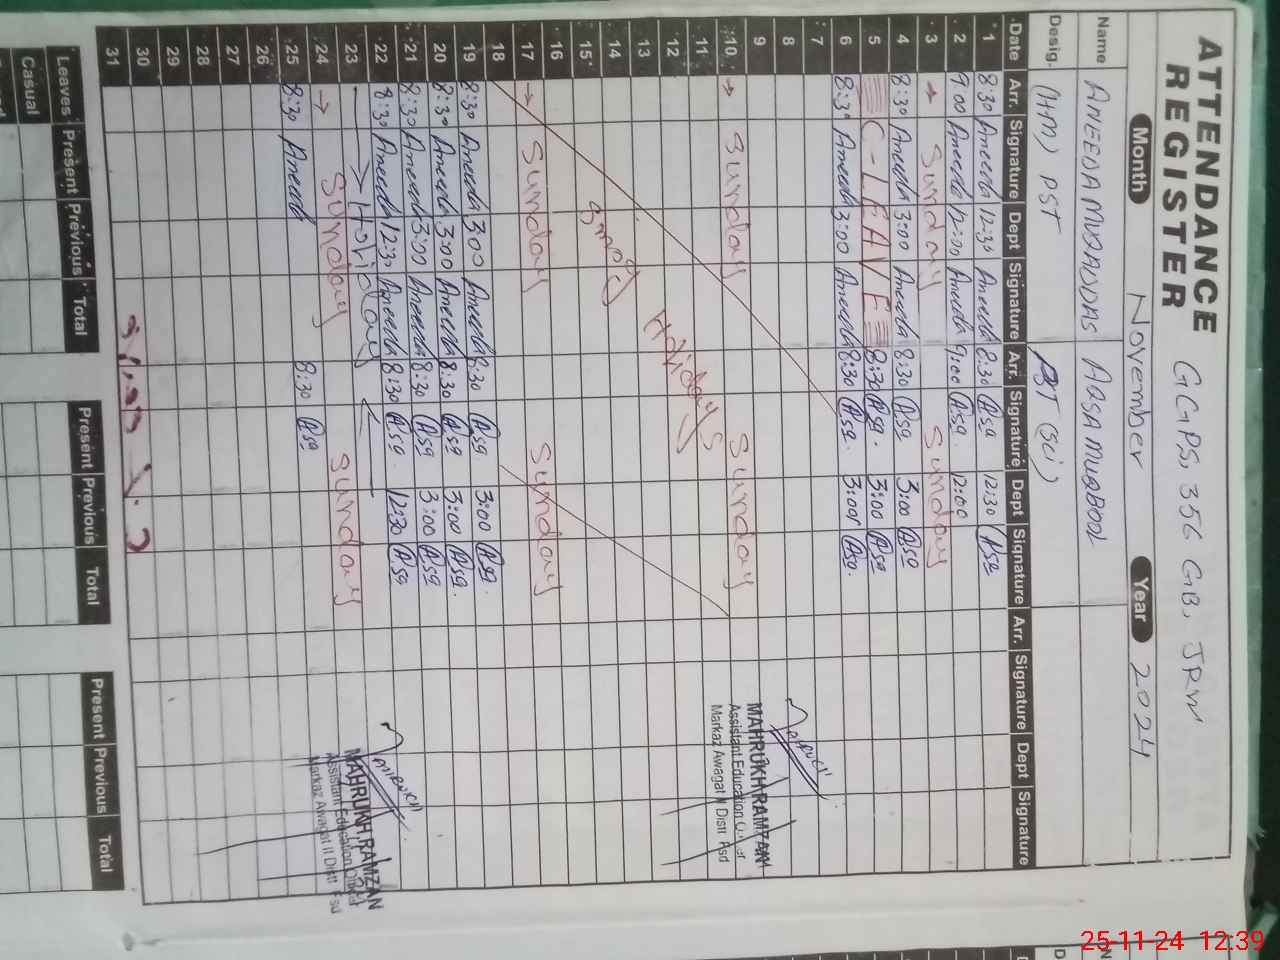 ATTENDANCE REGISTER GGPS, 356 GB, JRW
Month November Year 2024
Name ANEEDA MUQADDAS AQSA MUQBOOL
Desig. (HM) PST PST (SC)
Date Arr. Signature Dept Signature Arr. Signature Dept Signature Arr. Signature Dept Signature
1 8:30 Aneeda 12:30 Aneeda 8:30 Aqsa 12:30 Aqsa
2 9:00 Aneeda 12:00 Aneeda 9:00 Aqsa 12:00
3 → Sunday Sunday
4 8:30 Aneeda 3:00 Aneeda 8:30 Aqsa 3:00 Aqsa
5 C-LEAVE 8:30 Aqsa 3:00 Aqsa
6 8:30 Aneeda 3:00 Aneeda 8:30 Aqsa 3:00 Aqsa
7
8
9
10 → Sunday Sunday
11
12 Holidays
13
14 Smog
15
16
17 → Sunday Sunday
18
19 8:30 Aneeda 3:00 Aneeda 8:30 Aqsa 3:00 Aqsa
20 8:30 Aneeda 3:00 Aneeda 8:30 Aqsa 3:00 Aqsa
21 8:30 Aneeda 3:00 Aneeda 8:30 Aqsa 3:00 Aqsa
22 8:30 Aneeda 12:30 Aneeda 8:30 Aqsa 12:30 Aqsa
23 Holiday
24 → Sunday Sunday
25 8:30 Aneeda 8:30 Aqsa
26
27
28
29
30
31
MAHRUKH RAMZAN
Assistant Education Officer
Markaz Awagat II Distt Fsd
MAHRUKH RAMZAN
Assistant Education Officer
Markaz Awagat II Distt Fsd
Leaves Present Previous Total Present Previous Total Present Previous Total
Casual
25-11-24 12:39